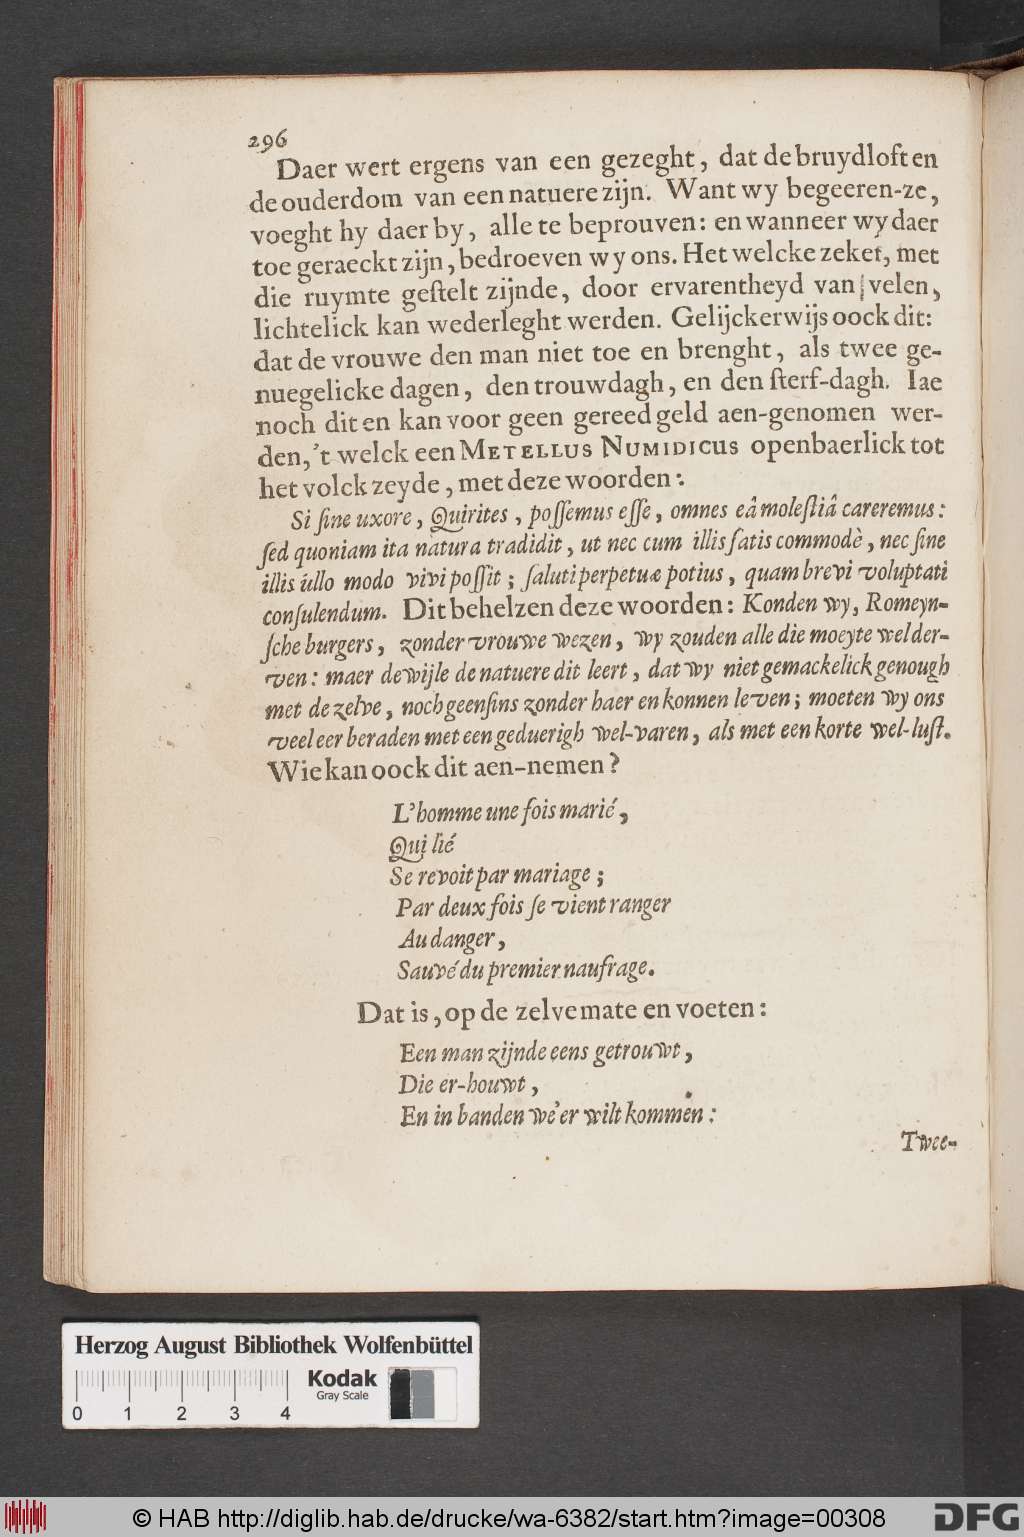 296
Daer wert ergens van een gezeght, dat de bruydloft en
de ouderdom van een natuere zijn. Want wy begeeren-ze,
voeght hy daer by, alle te beprouven: en wanneer wy daer
toe geraeckt zijn, bedroeven wy ons. Het welcke zeket, met
die ruymte gestelt zijnde, door ervarentheyd van velen,
lichtelick kan wederleght werden. Gelijckerwijs oock dit:
dat de vrouwe den man niet toe en brenght, als twee ge-
nuegelicke dagen, den trouwdagh, en den sterf-dagh. Iae
noch dit en kan voor geen gereed geld aen-genomen wer-
den, 't welck een METELLUS NUMIDICUS openbaerlick tot
het volck zeyde, met deze woorden:
Si sine uxore, Quirites, possemus esse, omnes eâ molestiâ careremus:
sed quoniam ita natura tradidit, ut nec cum illis satis commodè, nec sine
illis úllo modo vivi possit; saluti perpetuæ potius, quam brevi voluptati
consulendum. Dit behelzen deze woorden: Konden wy, Romeyn-
sche burgers, zonder vrouwe wezen, wy zouden alle die moeyte wel der-
ven: maer dewijle de natuere dit leert, dat wy niet gemackelick genough
met de zelve, noch geensins zonder haer en konnen leven; moeten wy ons
veel eer beraden met een geduerigh wel-varen, als met een korte wel-lust.
Wie kan oock dit aen-nemen?
L'homme une fois marié,
Qui lié
Se revoit par mariage;
Par deux fois se vient ranger
Au danger,
Sauvé du premier naufrage.
Dat is, op de zelve mate en voeten:
Een man zijnde eens getrouwt,
Die er-houwt,
En in banden we'er wilt kommen:
Twee-
Herzog August Bibliothek Wolfenbüttel
Kodak
Gray Scale
0 1 2 3 4
© HAB http://diglib.hab.de/drucke/wa-6382/start.htm?image=00308
DFG